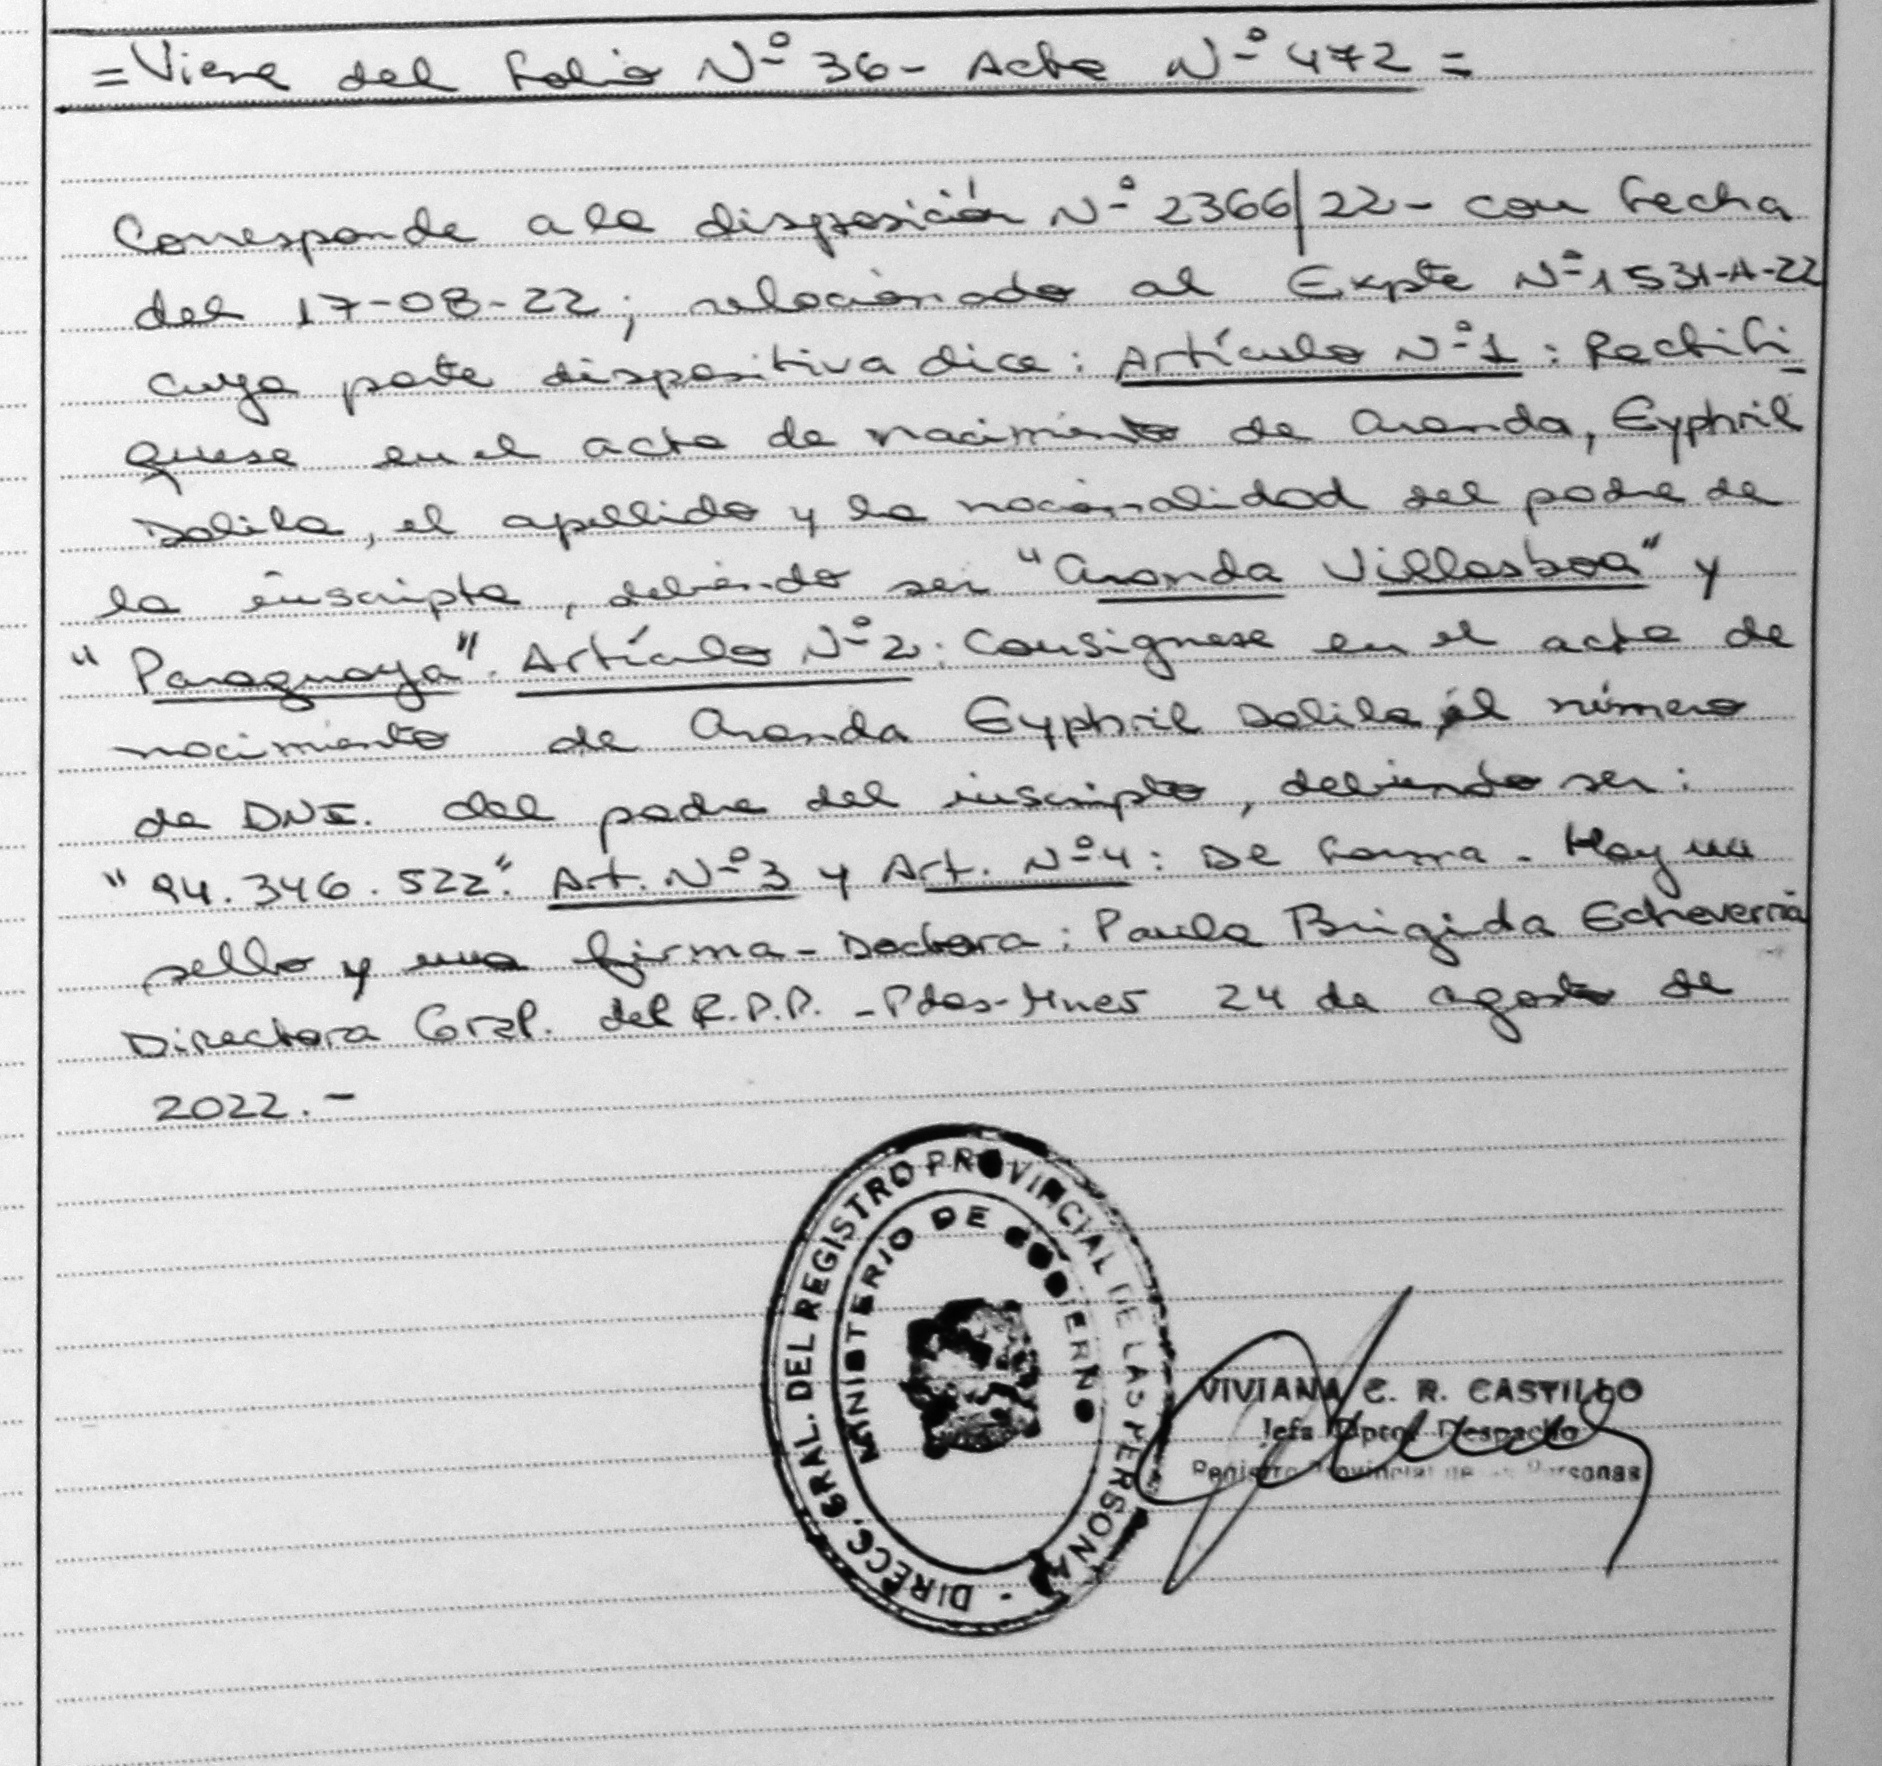 = Viene del folio Nº 36 - Acta Nº 472 =
Corresponde a la disposición Nº 2366/22 - con fecha
del 17-08-22; relacionado al Expte Nº 1531-A-22
cuya parte dispositiva dice: Artículo Nº 1: Rectifí-
quese en el acta de nacimiento de Aranda, Eyphril
Dalila, el apellido y la nacionalidad del padre de
la inscripta, debiendo ser "Aranda Villasboa" y
"Paraguaya". Artículo Nº 2: Consignese en el acta de
nacimiento de Aranda Eyphril Dalila, el número
de DNI. del padre del inscripto, debiendo ser:
"94.346.522". Art. Nº 3 y Art. Nº 4: De forma. Hay un
sello y una firma - Doctora: Paula Brigida Echeverria
Directora Gral. del R.P.P. - Pdas - Mnes 24 de agosto de
2022.-
DIRECC. GRAL. DEL REGISTRO PROVINCIAL DE LAS PERSONAS -
MINISTERIO DE GOBIERNO
VIVIANA C. R. CASTILLO
Jefa Dpto. Despacho
Registro Provincial de las Personas